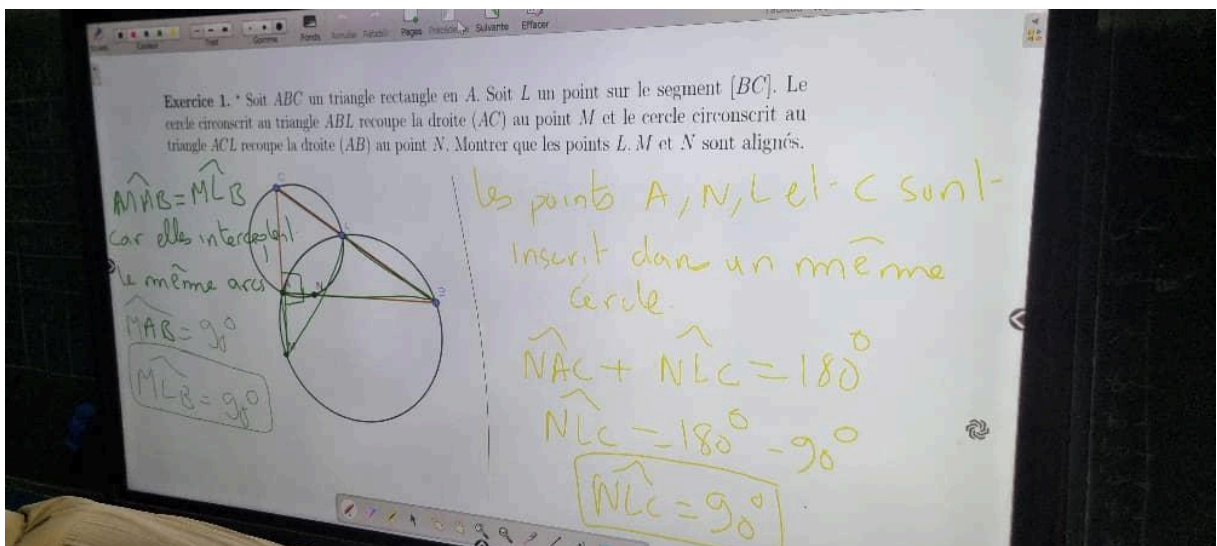 Pages
Suivante
Effacer
Exercice 1. * Soit ABC un triangle rectangle en A. Soit L un point sur le segment [BC]. Le
cercle circonscrit au triangle ABL recoupe la droite (AC) au point M et le cercle circonscrit au
triangle ACL recoupe la droite (AB) au point N. Montrer que les points L, M et N sont alignés.
MAB = MLB
Car elles interceptent
le même arcs
MAB = 90°
MLB = 90°
C
B
les points A, N, L et C sont
inscrit dan un même
cercle.
NAC + NLC = 180°
NLC = 180° - 90°
NLC = 90°